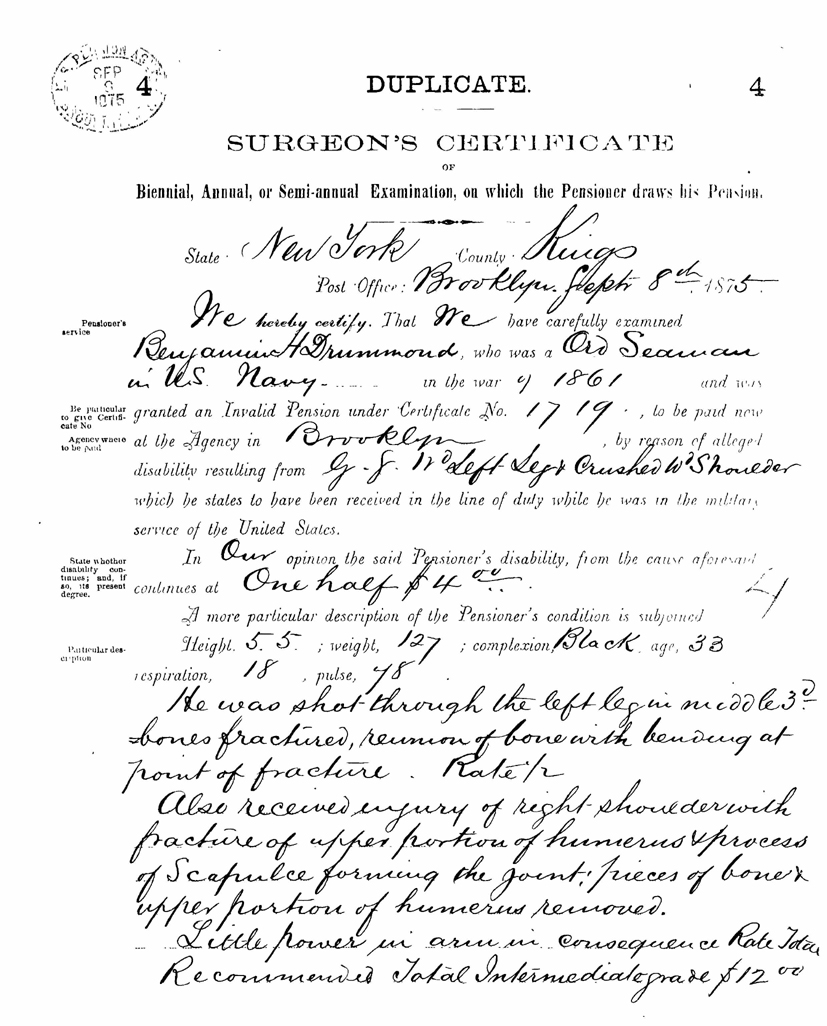 U.S. PENSION AGENCY
SEP
8
1875
4
DUPLICATE.
4
SURGEON'S CERTIFICATE
OF
Biennial, Annual, or Semi-annual Examination, on which the Pensioner draws his Pension.
State: New York County: Kings
Post Office: Brooklyn. Septr 8th 1875.
Pensioner's service
We hereby certify. That We have carefully examined
Benjamin H Drummond, who was a Ord Seaman
in U.S. Navy in the war of 1861 and was
Be particular to give Certificate No
granted an Invalid Pension under Certificate No. 1719, to be paid now
Agency where to be paid
at the Agency in Brooklyn, by reason of alleged
disability resulting from G. S. Wd Left Leg & Crushed Wd Shoulder
which he states to have been received in the line of duty while he was in the military
service of the United States.
State whether disability continues; and, if so, its present degree.
In Our opinion the said Pensioner's disability, from the cause aforesaid
continues at One half $4 00
4
A more particular description of the Pensioner's condition is subjoined
Particular description
Height. 5.5. ; weight, 127 ; complexion, Black. age, 33
respiration, 18, pulse, 78
He was shot through the left leg in middle 3d
bones fractured, reunion of bone with bending at
point of fracture. Rate 1/2
Also received injury of right shoulder with
fracture of upper portion of humerus & process
of Scapulce forming the joint; pieces of bone &
upper portion of humerus removed.
Little power in arm in consequence Rate Total
Recommended Total Intermediate grade $12 00